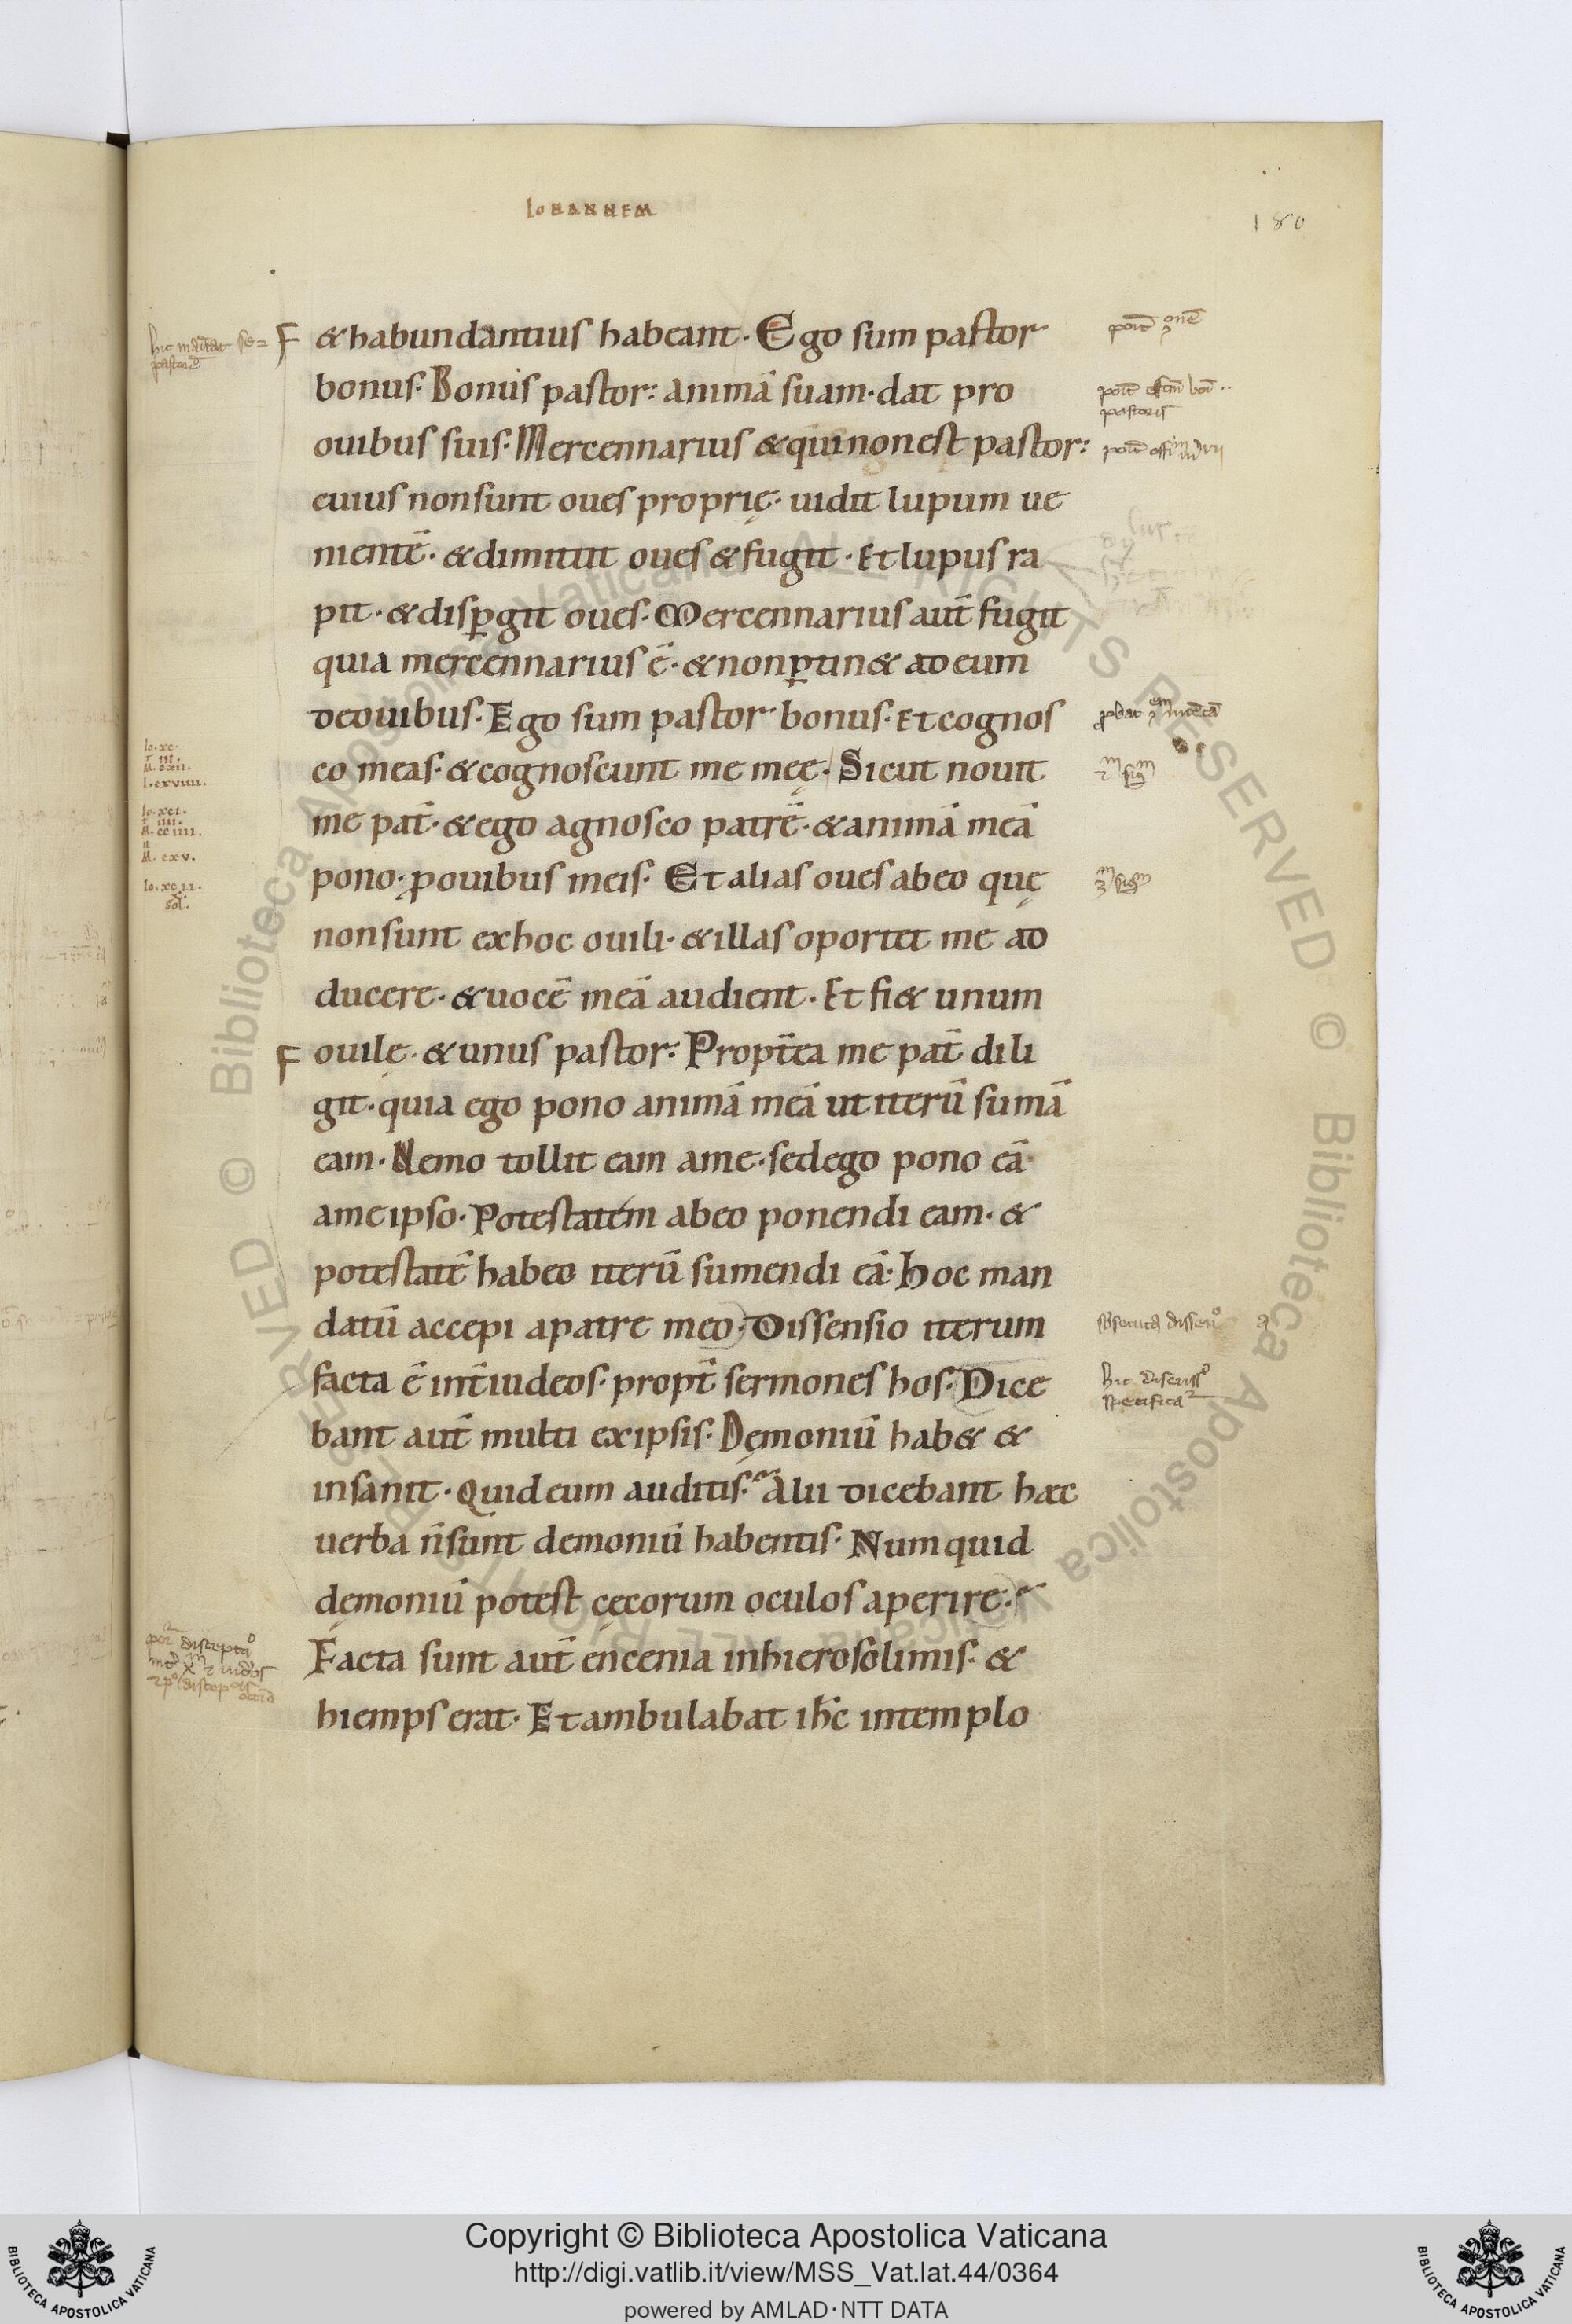 IOHANNEM
180
& habundantius habeant. Ego sum pastor
bonus. Bonus pastor: animā suam. dat pro
ouibus suis. Mercennarius & qui non est pastor:
cuius non sunt oues proprię. uidit lupum ue
nientē. & dimittit oues & fugit. Et lupus ra
pit. & disꝑgit oues. Mercennarius aut̄ fugit
quia mercennarius ē. & non ꝑtin& ad eum
de ouibus. Ego sum pastor bonus. Et cognos
co meas. & cognoscunt me meę. Sicut nouit
me pat̄. & ego agnosco patrē. & animā meā
pono. ꝓ ouibus meis. Et alias oues abeo quę
non sunt ex hoc ouili. & illas oportet me ad
ducere. & uocē meā audient. Et fi& unum
F ouile. & unus pastor. Propt̄ea me pat̄ dili
git. quia ego pono animā meā ut iterū sumā
eam. Nemo tollit eam a me. sed ego pono eā.
a me ipso. Potestatem abeo ponendi eam. &
potestatē habeo iterū sumendi eā. Hoc man
datū accepi a patre meo. Dissensio iterum
facta ē int̄ iudeos. propt̄ sermones hos. Dice
bant aut̄ multi ex ipsis. Dęmoniū hab& &
insanit. Quid eum auditis. Alii dicebant hæc
uerba n̄ sunt demoniū habentis. Numquid
dęmoniū potest cęcorum oculos aperire.
Facta sunt aut̄ encenia in hierosolimis. &
hiemps erat. Et ambulabat ih̄c in templo
Io. xc.
Io. xci.
M. cxv.
pastoris
Copyright © Biblioteca Apostolica Vaticana
http://digi.vatlib.it/view/MSS_Vat.lat.44/0364
powered by AMLAD·NTT DATA
BIBLIOTECA APOSTOLICA VATICANA
BIBLIOTECA APOSTOLICA VATICANA